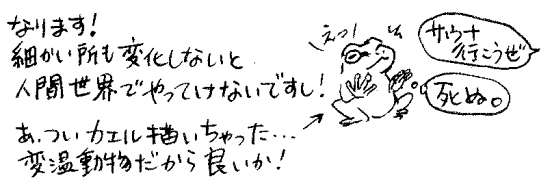 なります!
細かい所も変化しないと
人間世界でやっていけないですし!
あ、ついカエル描いちゃった…
変温動物だから良いか!
えっ!
サウナ
行こうぜ
死ぬ。